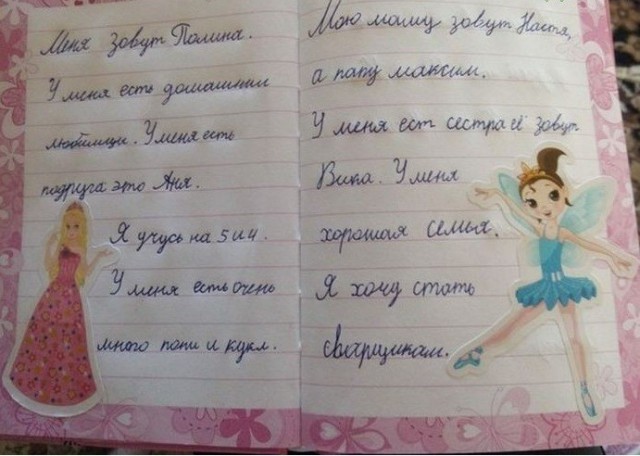 Меня зовут Полина.
У меня есть домашнии
любимици. У меня есть
подруга это Аня.
Я учусь на 5 и 4.
У меня есть очень
много пони и кукл.
Мою маму зовут Настя,
а папу максим.
У меня ест сестра её зовут
Вика. У меня
хорошая семья.
Я хочу стать
сварщикам.